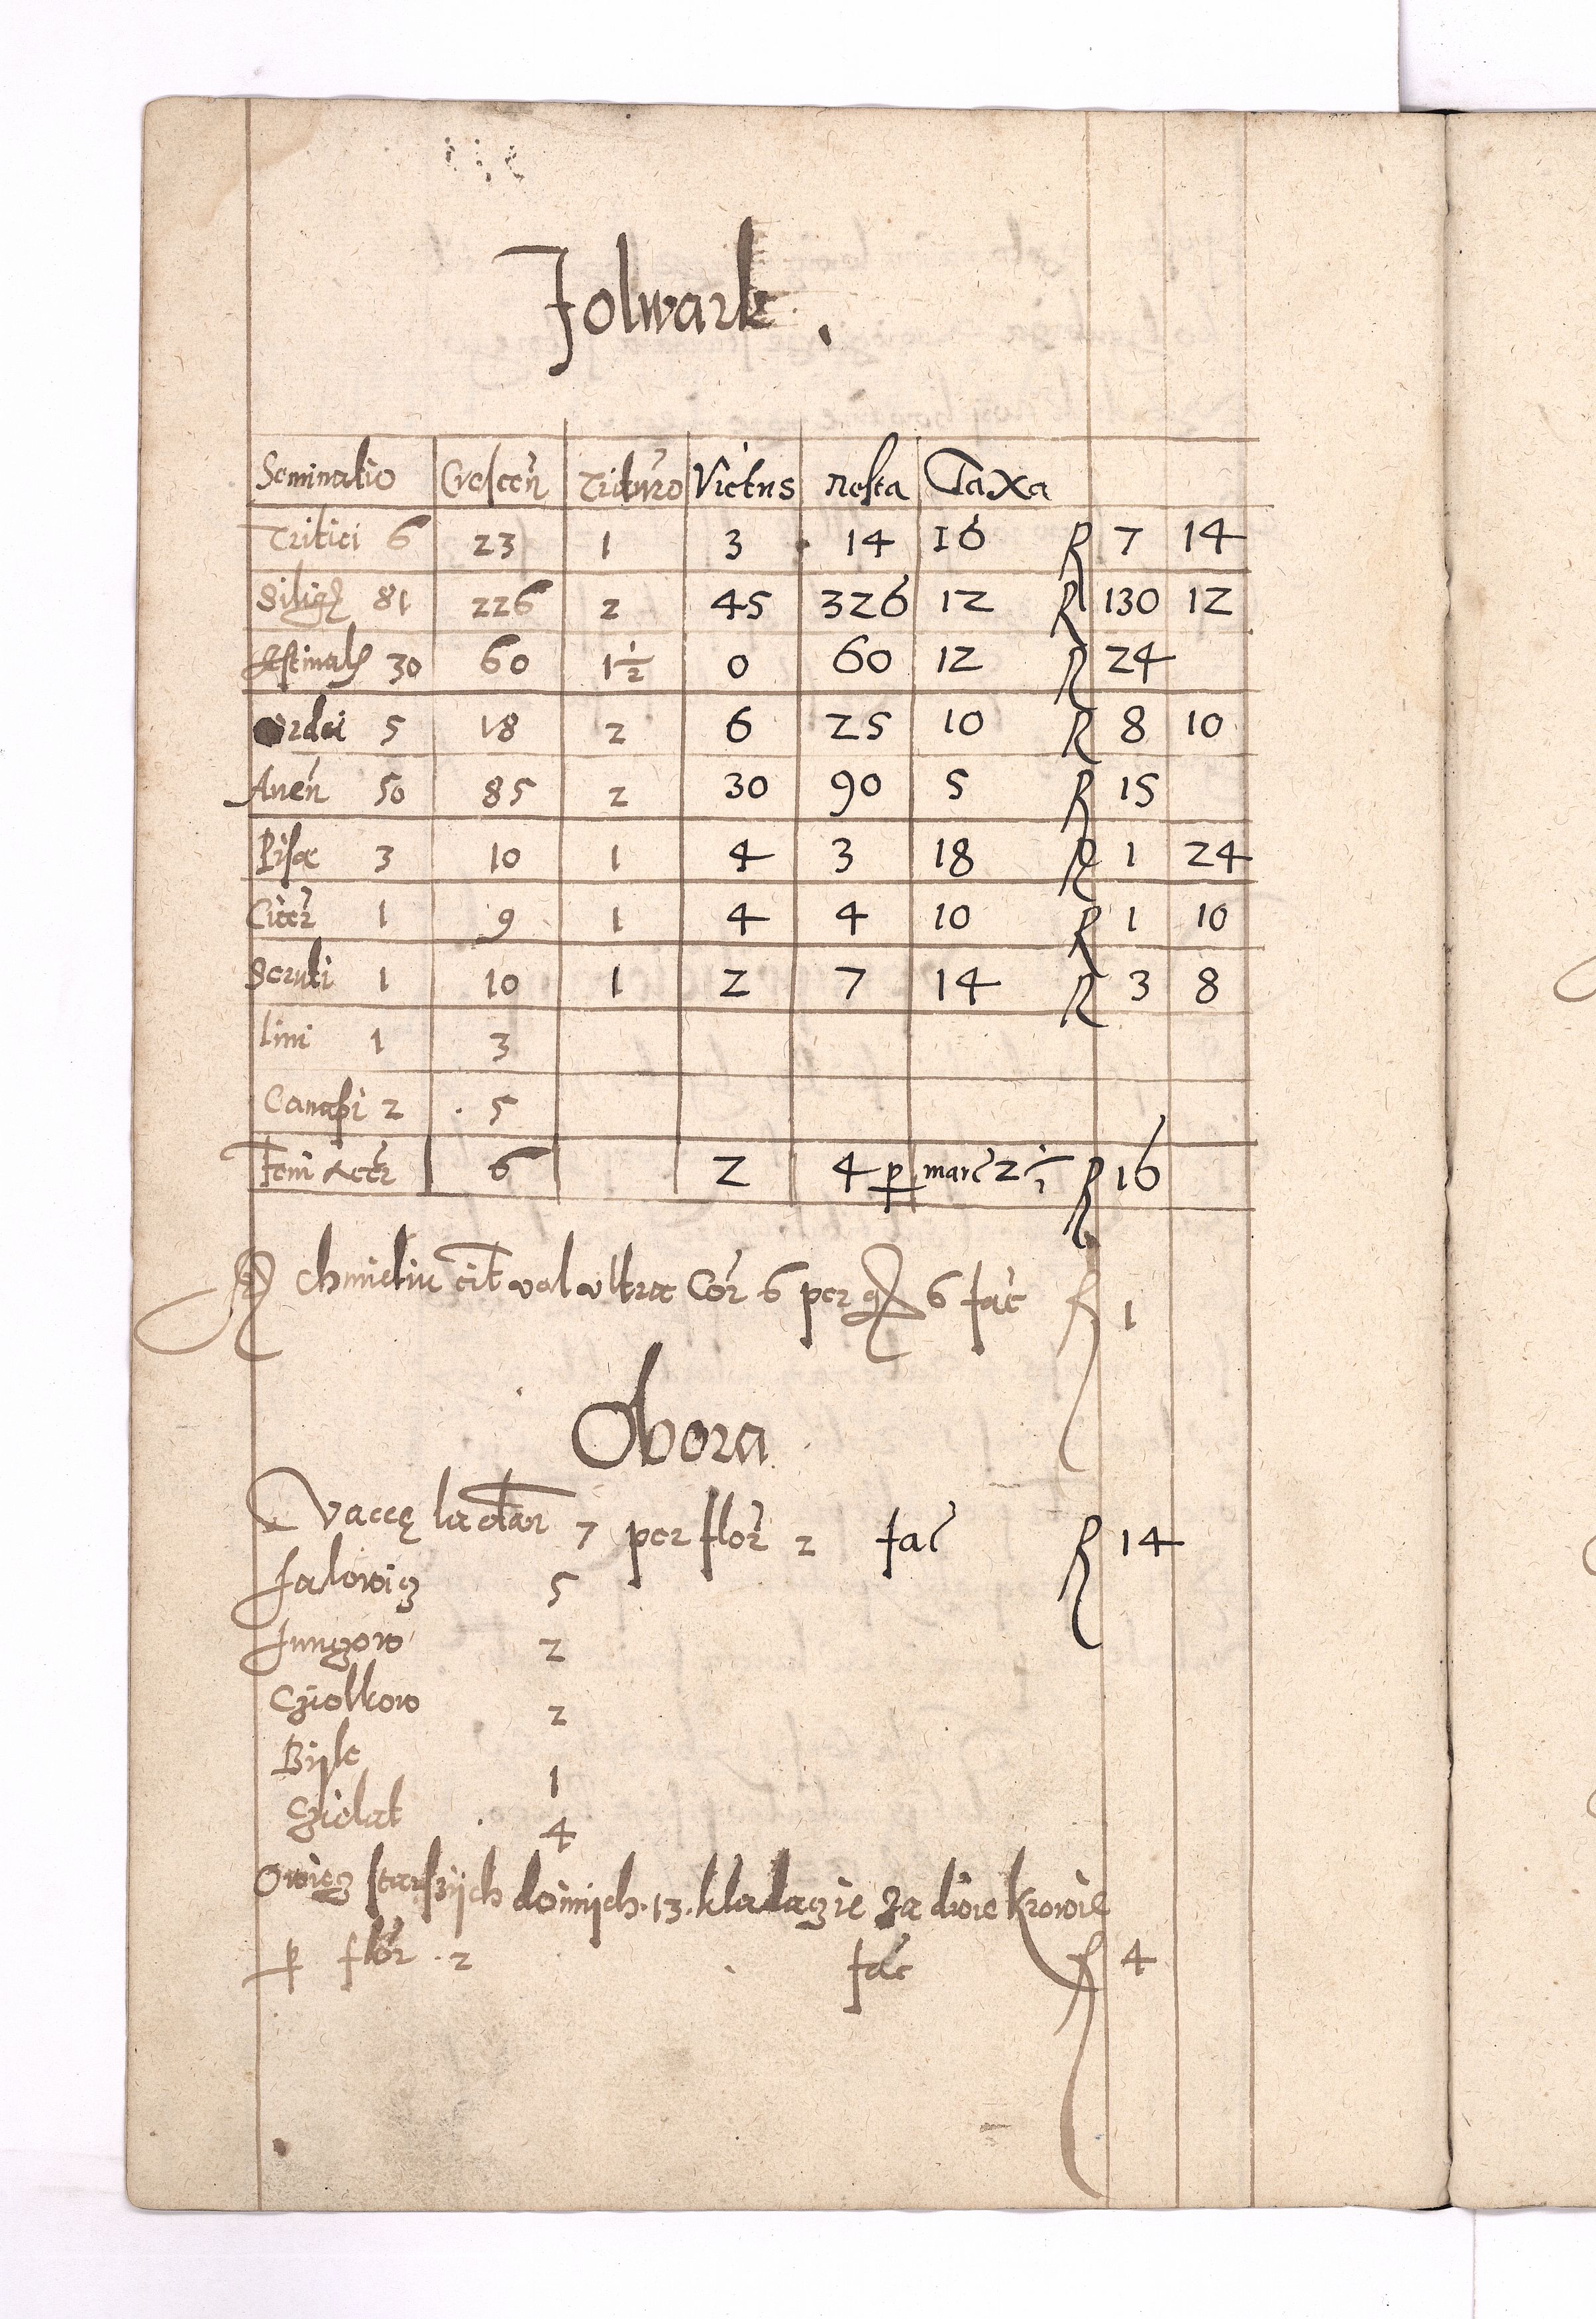 Folwark.
Seminatio Crescen Trituro Victus Resta Taxa
Tritici 6 23 1 3 14 16 R 7 14
Silig 81 226 2 45 326 12 R 130 12
Estinal 30 60 1½ 0 60 12 R 24
ordei 5 18 2 6 25 10 R 8 10
Auen 50 85 2 30 90 5 R 15
Pisae 3 10 1 4 3 18 R 1 24
Cicer 1 9 1 4 4 10 R 1 10
Seruti 1 10 1 2 7 14 R 3 8
lini 1 3
Canapi 2 5
Feni acer 6 2 4 p marc 2½ R 16
chmieliu cit val ultra Cor 6 per g 6 fac f 1
Obora
Vaccę lactan 7 per flor 2 fac R 14
Jalowicz 5
Junczow 2
Cziolkow 2
Byk 1
Czielat 4
Owiecz starszych doinych 13 kladaczie za dwie krowie
p flor 2 fac f 4